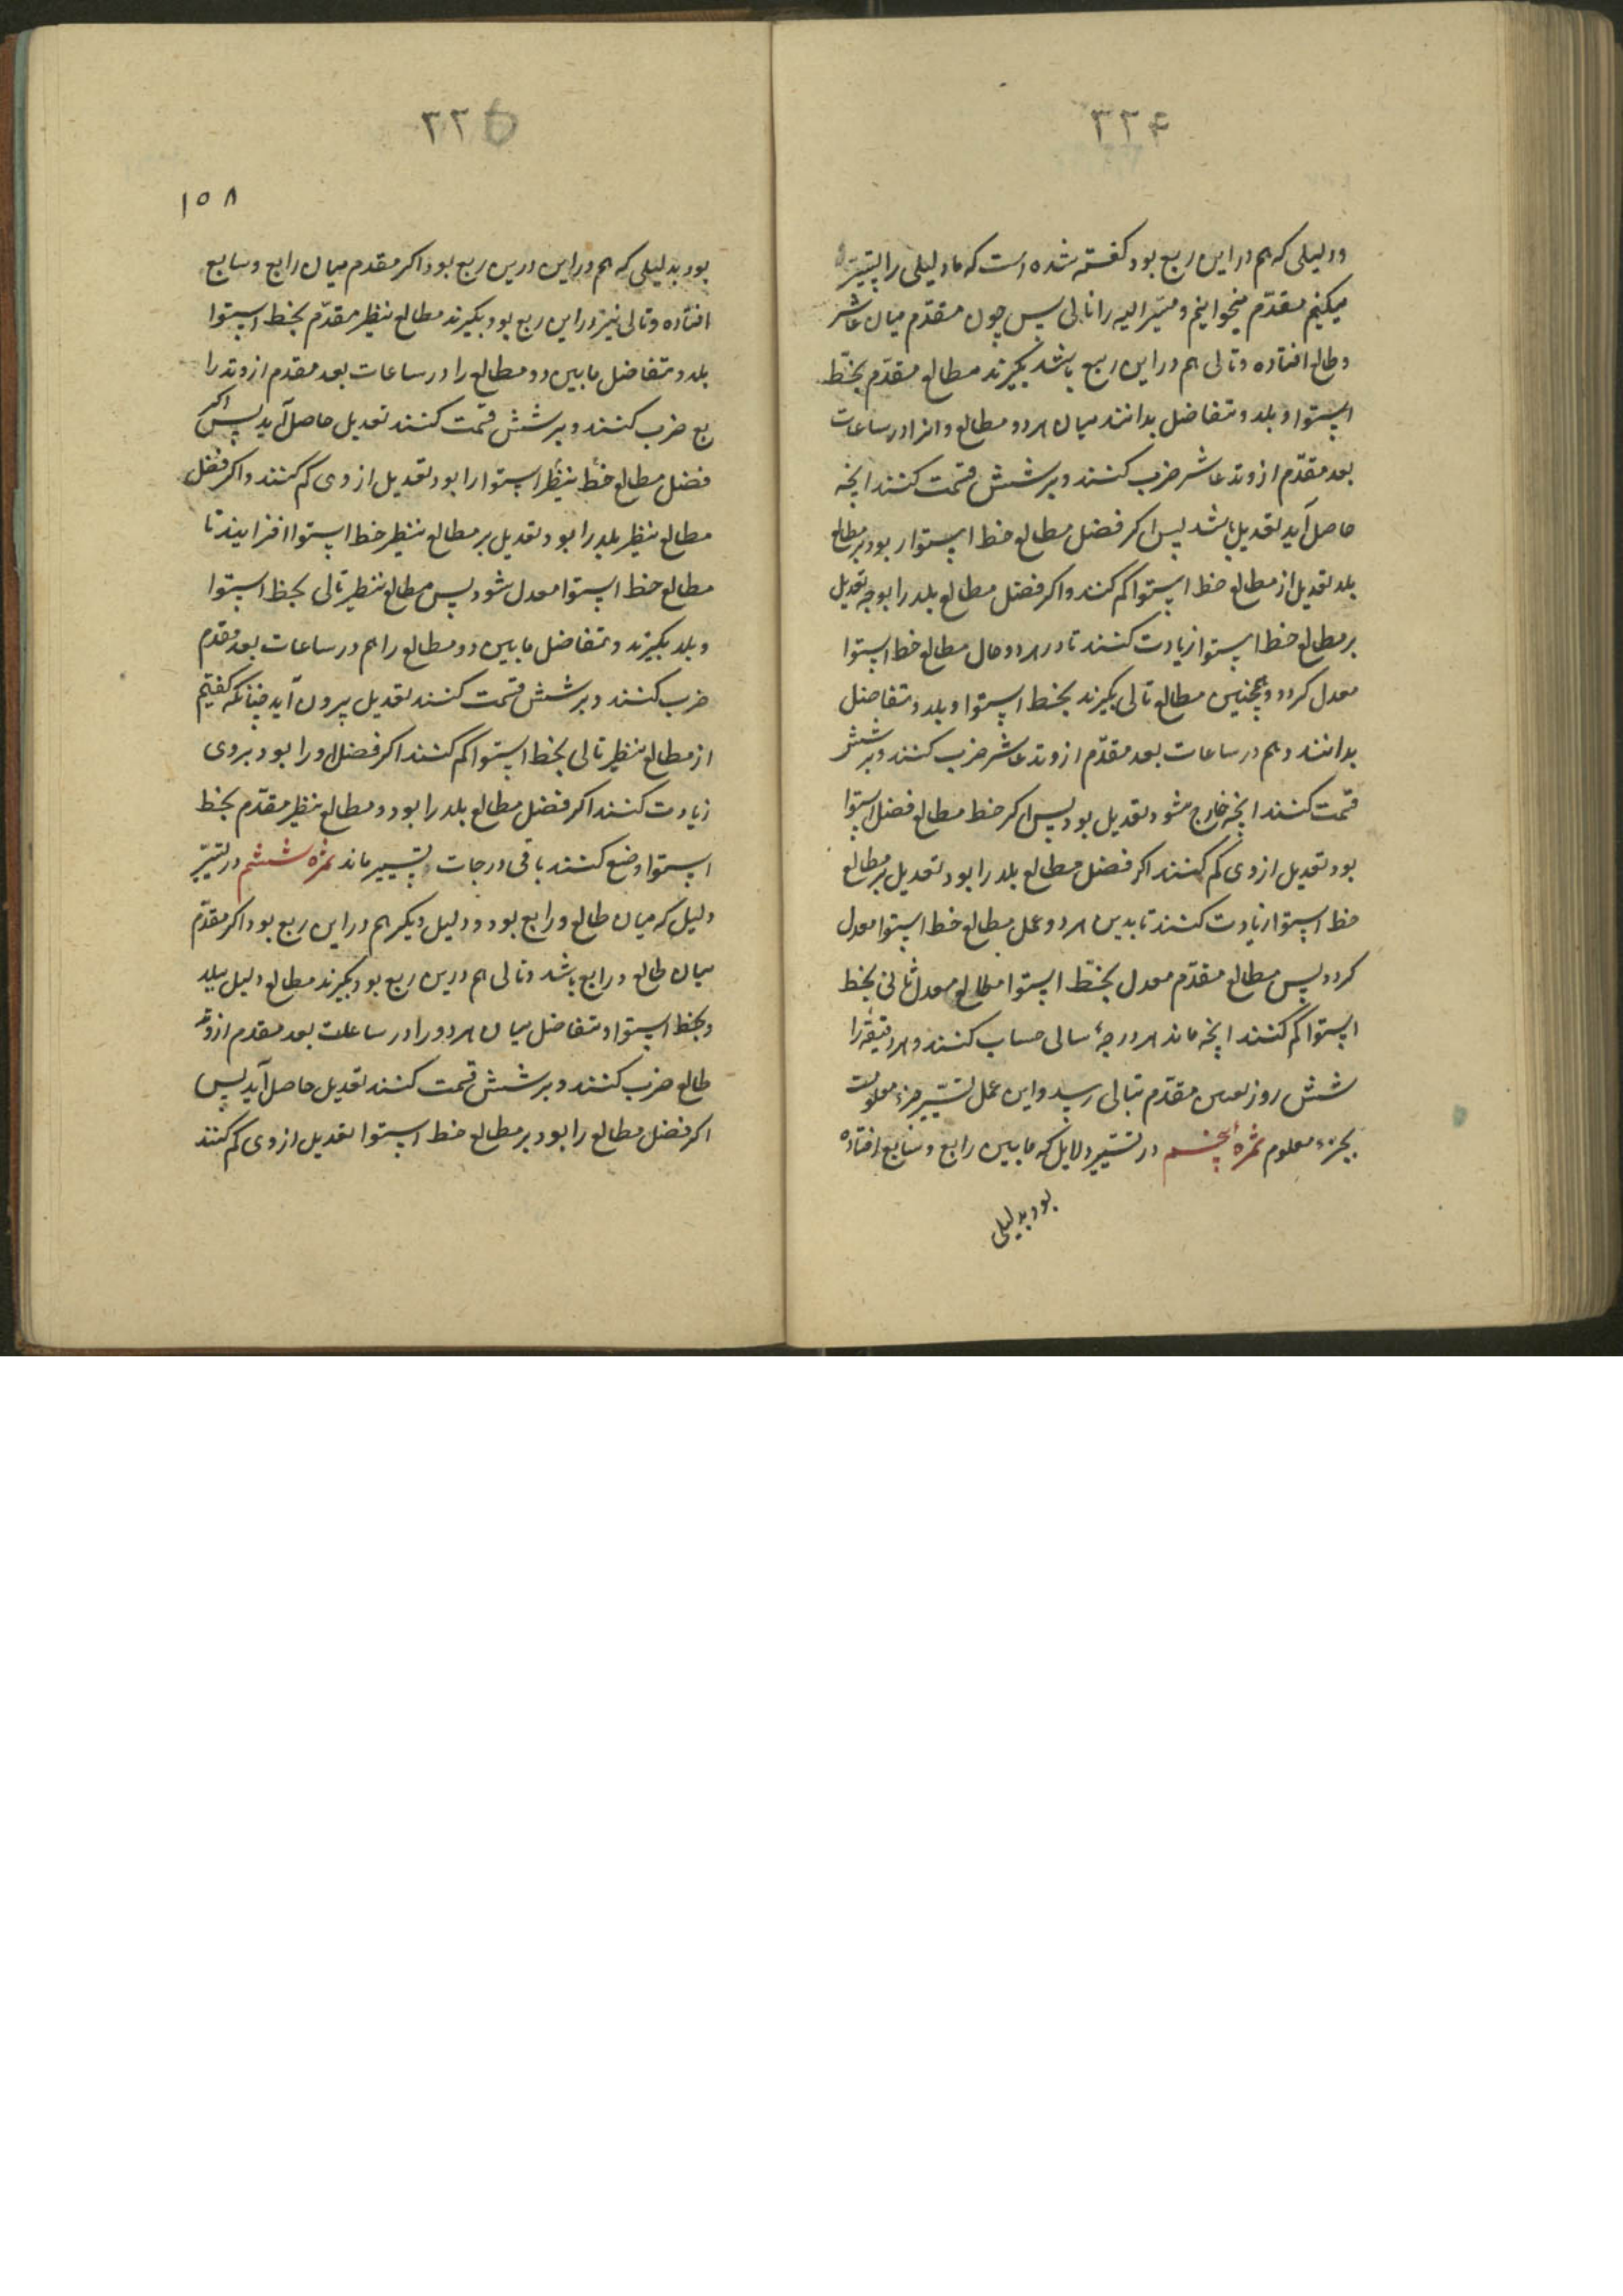 ۳۳۴
ودلیلی که هم در این ربع بود گفته شده است که ما دلیلی را بتسییر
میکنیم مقدّم میخوانیم و مسیّر الیه را تالی پس چون مقدّم میان عاشر
وطالع افتاده وتالی هم در این ربع باشد بگیرند مطالع مقدّم بخطّ
استوا و بلد و تفاضل بدانند میان هر دو مطالع و انرا در ساعات
بعد مقدّم از وتد عاشر ضرب کنند و بر شش قسمت کنند انچه
حاصل آید تعدیل باشد پس اکر فضل مطالع خط استوا را بود بر مطالع
بلد تعدیل از مطالع خط استوا کم کنند واکر فضل مطالع بلد را بود تعدیل
بر مطالع خط استوا زیادت کنند تا در هر دو حال مطالع خط استوا
معدل کردد وهمچنین مطالع تالی بگیرند بخط استوا و بلد و تفاضل
بدانند و هم در ساعات بعد مقدّم از وتد عاشر ضرب کنند و بر شش
قسمت کنند انچه خارج شود تعدیل بود پس اکر خط مطالع فضل استوا
بود تعدیل از وی کم کنند اکر فضل مطالع بلد را بود تعدیل بر مطالع
خط استوا زیادت کنند تا بدین هر دو عمل مطالع خط استوا معدل
کردد پس مطالع مقدّم معدل بخطّ استوا مطالع معدل ثانی بخط
استوا کم کنند انچه ماند هر درجهٔ سالی حساب کنند و هر دقیقه را
شش روز مقدّم بتالی رسد و این عمل تسییر جزء معلومست
بجزء معلوم ثمره پنجم در تسییر دلایل که مابین رابع و سابع افتاده
بود بدلیلی
۳۳۵
۱۵۸
بود بدلیلی که هم در این درین ربع بود اکر مقدم میان رابع و سابع
افتاده وتالی نیز در این ربع بود بگیرند مطالع نظیر مقدّم بخط استوا
بلد و تفاضل مابین دو مطالع را در ساعات بعد مقدم از وتد را
بع ضرب کنند و بر شش قسمت کنند تعدیل حاصل آید پس اکر
فضل مطالع خط نظیر استوا را بود تعدیل از وی کم کنند و اکر فضل
مطالع نظیر بلد را بود تعدیل بر مطالع نظیر خط استوا افزایند تا
مطالع خط استوا معدل شود پس مطالع نظیر تالی بخط استوا
و بلد بگیرند و تفاضل مابین دو مطالع را هم در ساعات بعد مقدم
ضرب کنند و بر شش قسمت کنند تعدیل بیرون آید چنانکه کفتیم
از مطالع نظیر تالی بخط استوا کم کنند اکر فضل او را بود بروی
زیادت کنند اکر فضل مطالع بلد را بود و مطالع نظیر مقدّم بخط
استوا وضع کنند باقی درجات تسییر ماند ثمره ششم در تسییر
دلیل که میان طالع و رابع بود و دلیل دیکر هم در این ربع بود اکر مقدّم
میان طالع و رابع باشد وتالی هم درین ربع بود بگیرند مطالع دلیل ببلد
و بخط استوا و تفاضل میان هر دو را در ساعات بعد مقدم از وتد
طالع ضرب کنند و بر شش قسمت کنند تعدیل حاصل آید پس
اکر فضل مطالع را بود بر مطالع خط استوا تعدیل از وی کم کنند